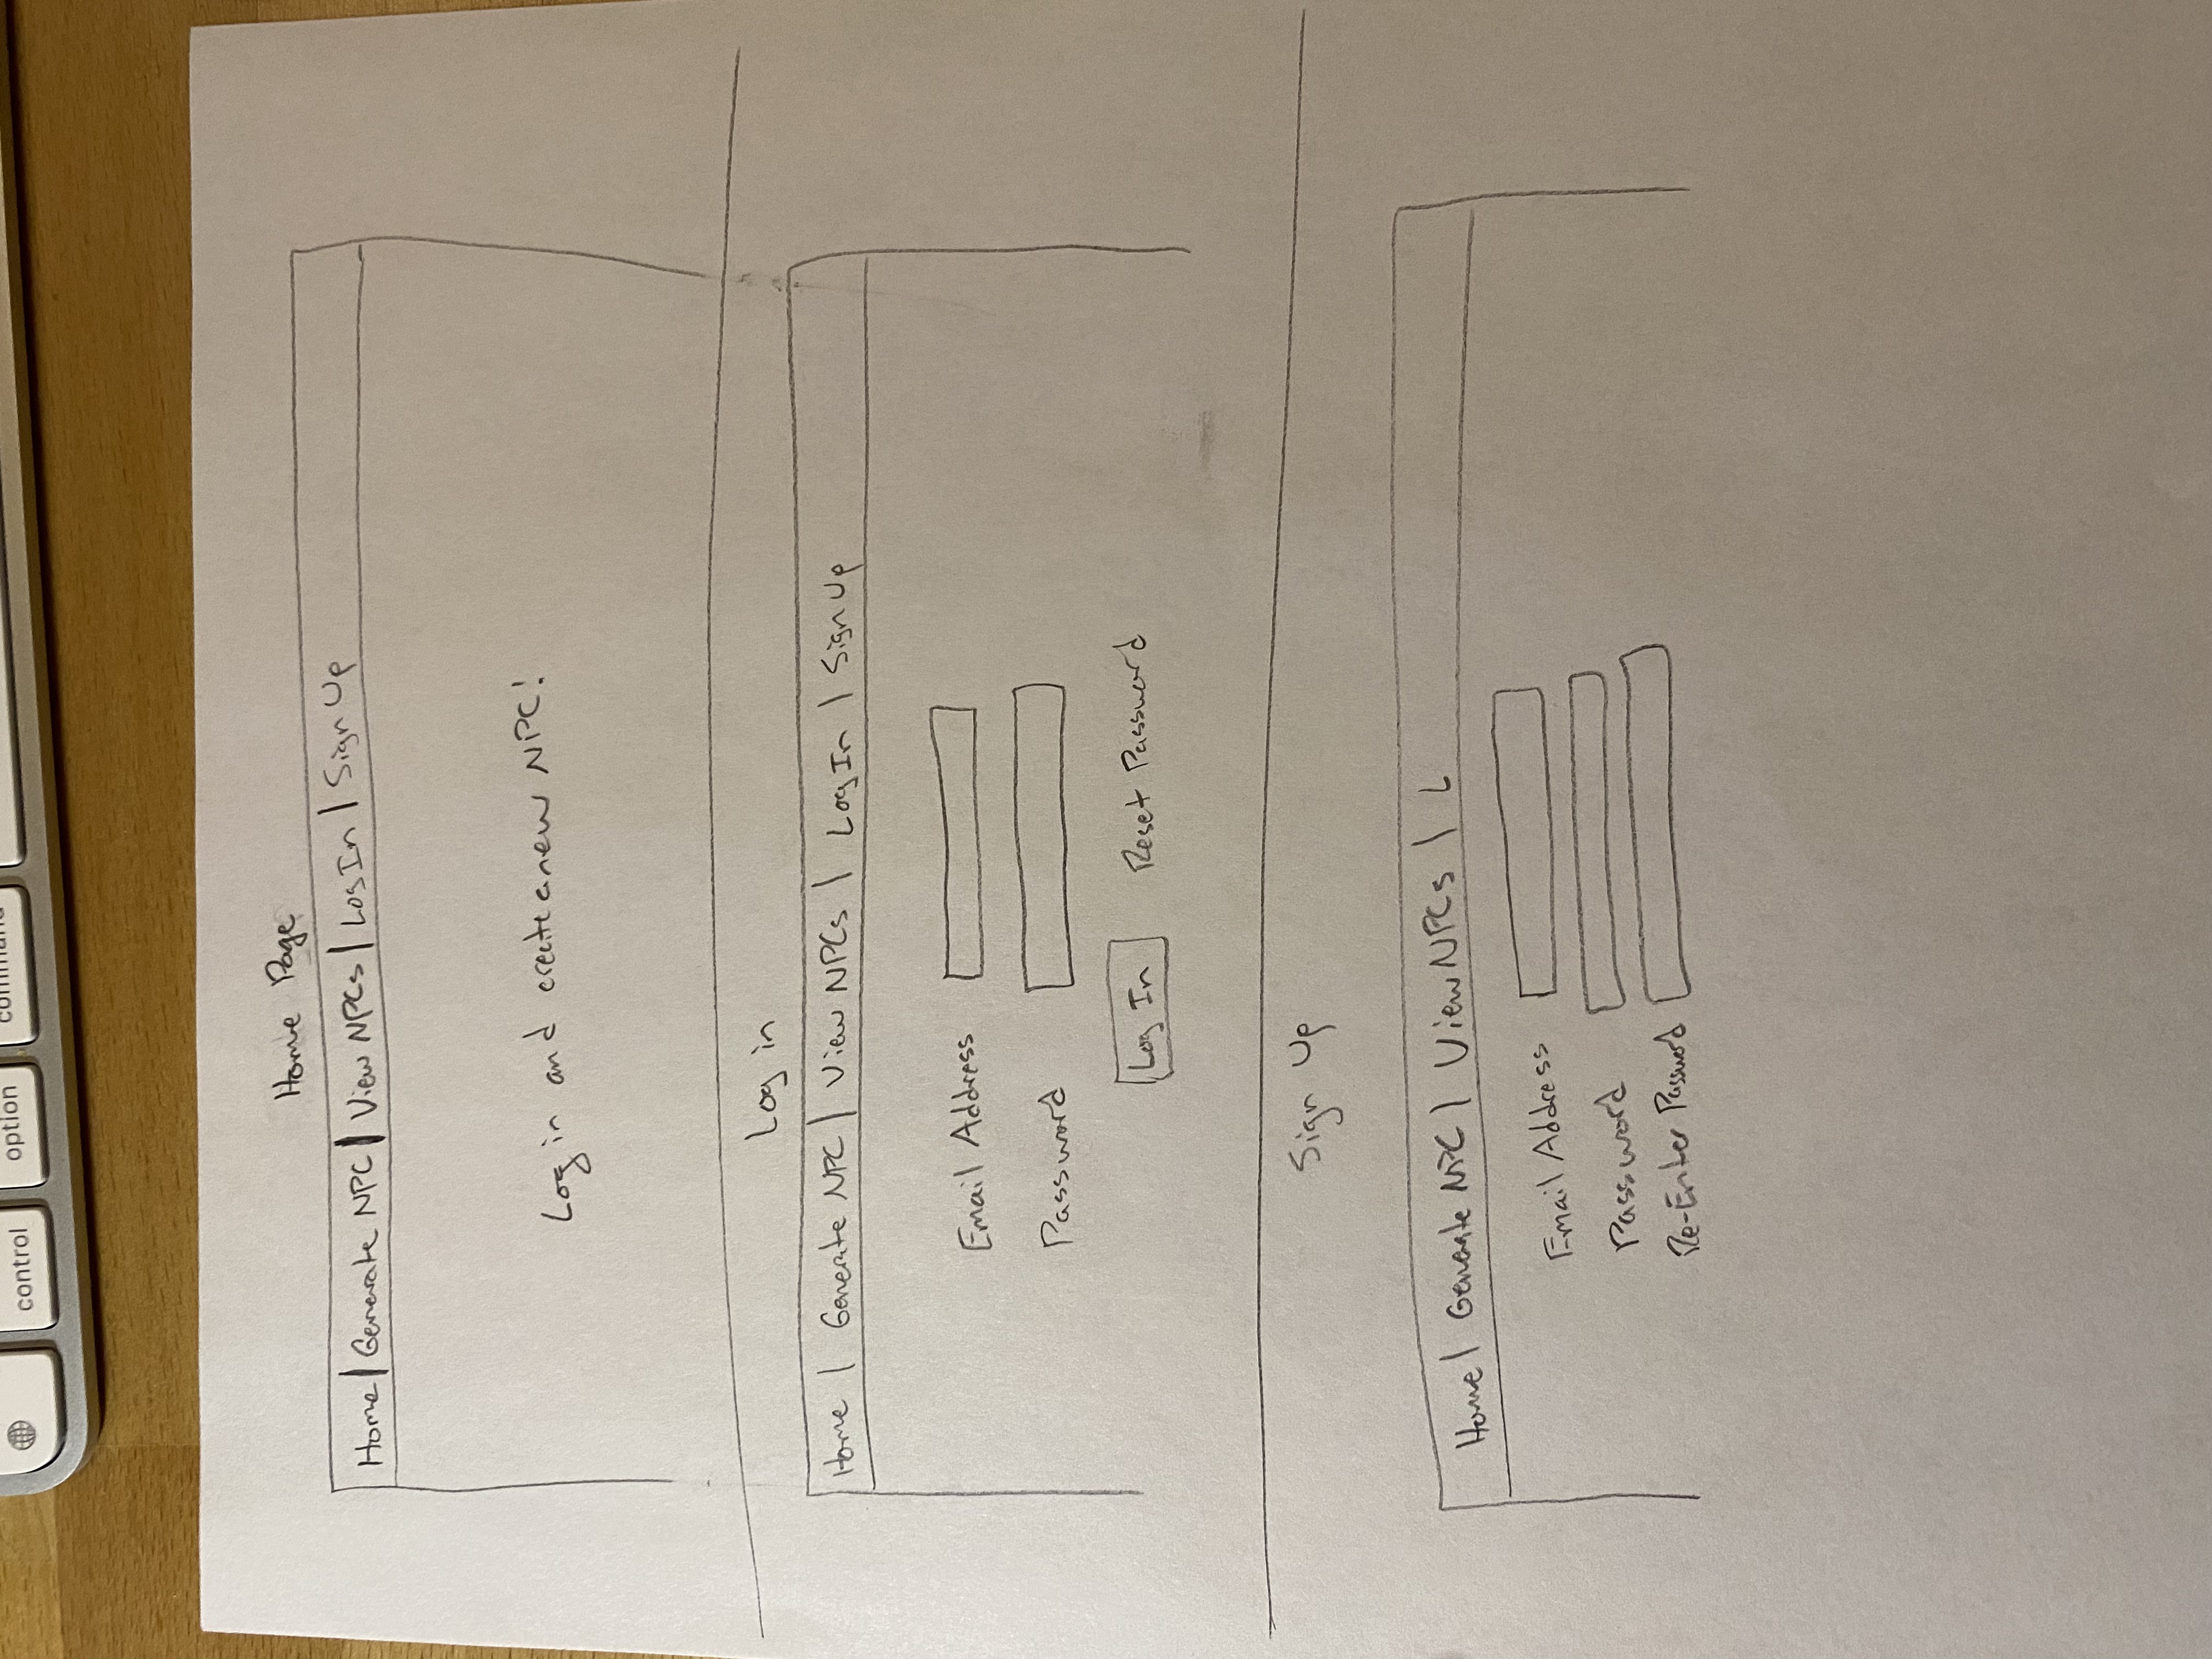 control option command
Home Page
Home | Generate NPC | View NPCs | Log In | Sign Up
Log in and create a new NPC!
Log in
Home | Generate NPC | View NPCs | Log In | Sign Up
Email Address
Password
Log In Reset Password
Sign Up
Home | Generate NPC | View NPCs | L
Email Address
Password
Re-Enter Password